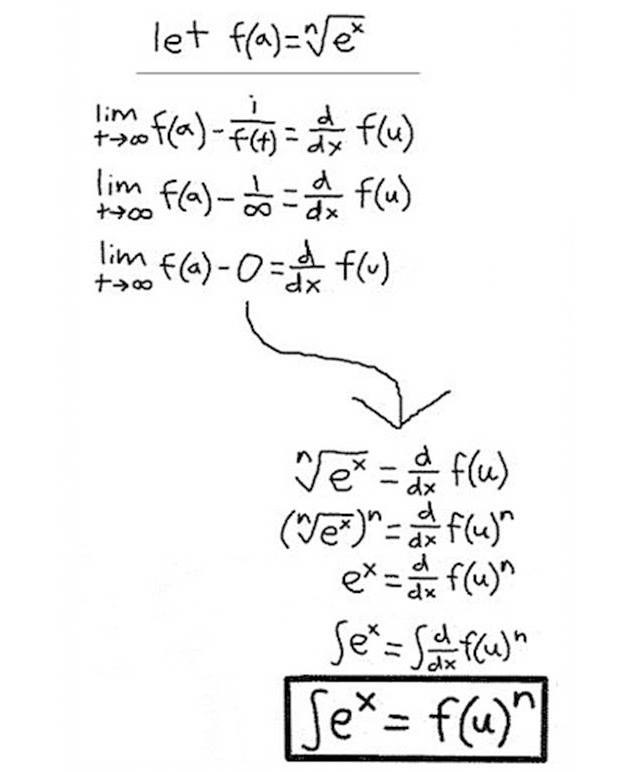 let f(a)=ⁿ√eˣ
lim t→∞ f(a) - i/f(t) = d/dx f(u)
lim t→∞ f(a) - 1/∞ = d/dx f(u)
lim t→∞ f(a) - 0 = d/dx f(u)
ⁿ√eˣ = d/dx f(u)
(ⁿ√eˣ)ⁿ = d/dx f(u)ⁿ
eˣ = d/dx f(u)ⁿ
∫eˣ = ∫d/dx f(u)ⁿ
∫eˣ = f(u)ⁿ